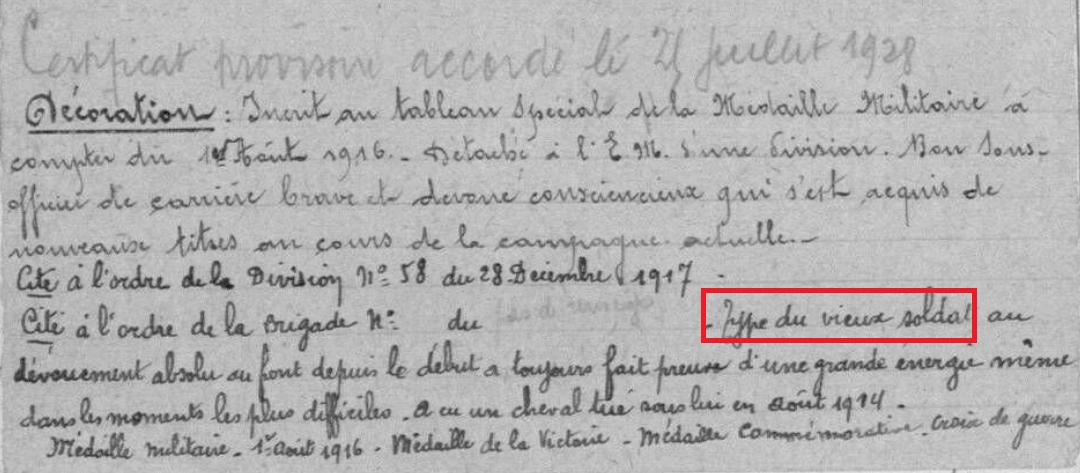 Certificat provisoire accordé le 21 Juillet 1928
Décoration : Inscrit au tableau spécial de la Médaille Militaire à
compter du 1er Août 1916. - Détaché à l'E.M. d'une division. Bon Sous-
officier de carrière brave et dévoué consciencieux qui s'est acquis de
nouveaux titres au cours de la campagne actuelle. -
Cité à l'ordre de la Division N° 58 du 28 Décembre 1917 -
Cité à l'ordre de la Brigade N° du - Type du vieux soldat au
dévouement absolu au front depuis le début a toujours fait preuve d'une grande énergie même
dans les moments les plus difficiles. A eu un cheval tué sous lui en août 1914 -
Médaille militaire - 1er août 1916 - Médaille de la Victoire - Médaille Commémorative. Croix de guerre